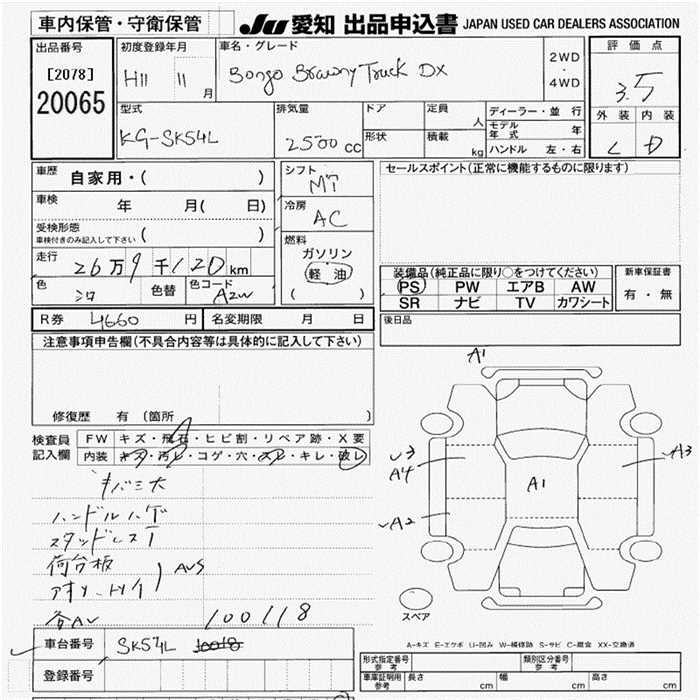 車内保管・守衛保管
JU 愛知 出品申込書 JAPAN USED CAR DEALERS ASSOCIATION
出品番号
[2078]
20065
初度登録年月
H11 11 月
車名・グレード
Bongo Brawny Truck DX
2WD
・
4WD
評価点
3.5
外装 内装
C D
型式
KG-SK54L
排気量
2500 cc
ドア
形状
定員
人
積載
kg
ディーラー・並行
モデル年式 年
ハンドル 左・右
車歴
自家用・( )
車検
年 月( 日)
受検形態
車検付きのみ記入して下さい ( )
走行
26万9千120km
色
色替
色コード
A2W
シフト
MT
冷房
AC
燃料
ガソリン
軽油
( )
セールスポイント(正常に機能するものに限ります)
装備品(純正品に限り○をつけてください)
PS PW エアB AW
SR ナビ TV カワシート
新車保証書
有・無
R券 4660 円
名変期限 月 日
後日品
注意事項申告欄(不具合内容等は具体的に記入して下さい)
修復歴 有(箇所 )
検査員
記入欄
FW キズ・飛石・ヒビ割・リペア跡・X要
内装 キズ・汚レ・コゲ・穴・スレ・キレ・破レ
キバミ大
ハンドルハゲ
スタッドレス
荷台板
アオリ
AUS
各AU
100118
A1
A4
A3
A1
A2
スペア
A-キズ E-エクボ U-凹み W-補修跡 S-サビ C-腐食 XX-交換済
車台番号
SK54L
登録番号
形式指定番号
参考
類別区分番号
参考
車庫証明用
参考
長さ cm
幅 cm
高さ cm